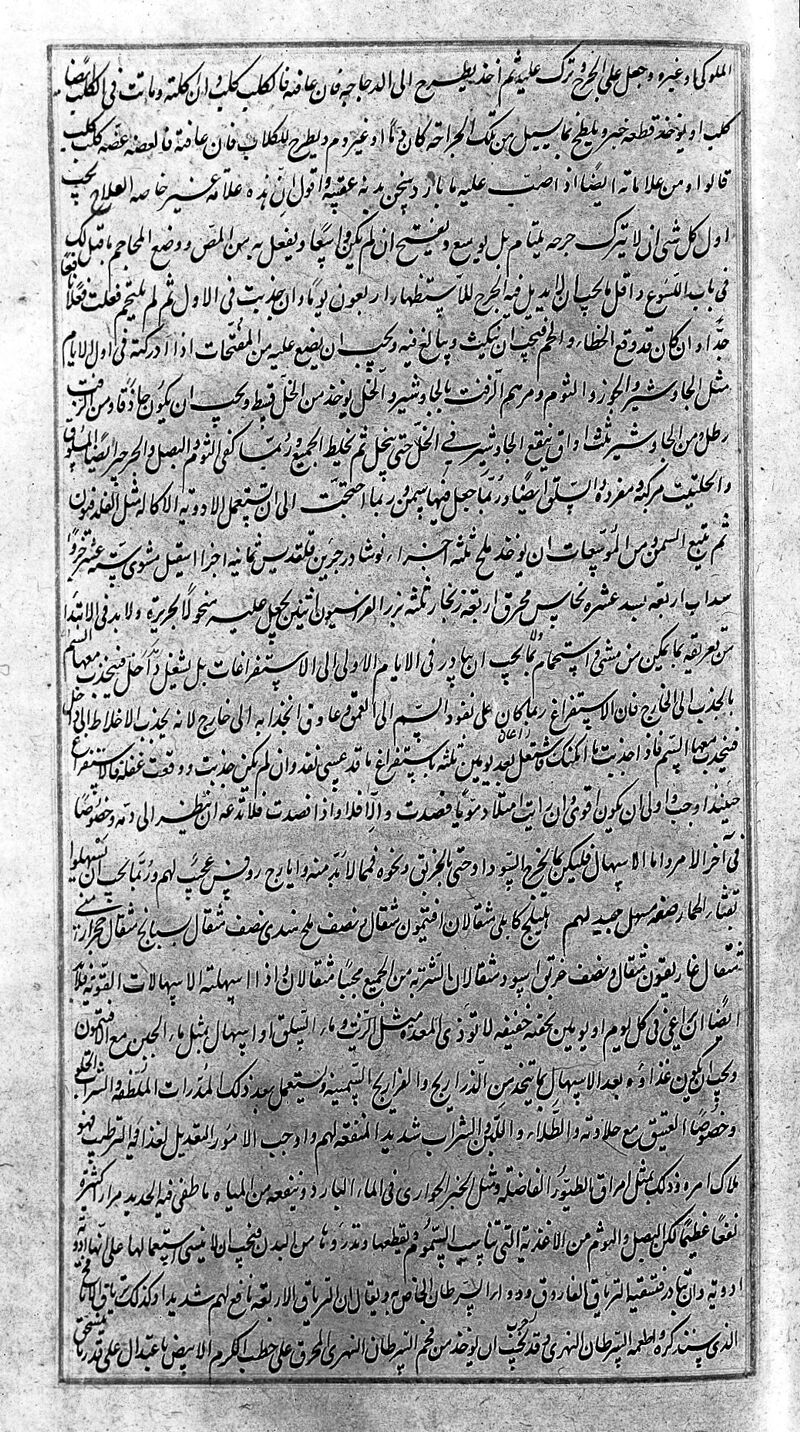 الملوكى او غيره و جعل على الجرح و ترك عليه ثم اخذ يطرح الى الدجاجه فان عافته فالكلب كلب و ان اكلته و ماتت فى الكلب ايضا
كلب او يوخذ قطعه خبز و يلطخ بما يسيل من تلك الجراحه كان دما او غير دم و يطرح للكلاب فان عافته فالعضه عضه كلب كلب
قالوا و من علاماته ايضا اذا صب عليه ماء بارد سخن بدنه عقيبه و اقول ان هذه علامه غير خاصه العلاج يجب
اول كل شى ان لا يترك جرحه يلتام بل يوسع و يفتح ان لم يكن واسعا و يفعل به من المص و وضع المحاجم ما قيل لك
فى باب اللسوع و اقل ما يجب ان لا يدمل فيه الجرح للاستظهار اربعون يوما و ان جذبت فى الاول ثم لم يلتحم فعلت فعلا نافعا
جدا و ان كان قد وقع الخطاء و الحم فيجب ان ينكث و يبالغ فيه و يجب ان يضع عليه من المفتحات اذا ادركته فى اول الايام
مثل الجاوشير و الجوز و الثوم و مرهم الزفت بالجاوشير و الخل يوخذ من الخل قسط و يجب ان يكون حاذقا و من الزفت
رطل و من الجاوشير ثلث اواق ينقع الجاوشير فى الخل حتى ينحل ثم يخلط الجميع و ربما كفى الثوم و البصل و الجرجير ايضا المسلوق
و الحلتيت مركبة و مفردة و السلق ايضا و ربما جعل فيها سمن و ربما احتجت الى ان تستعمل الادوية الاكالة مثل القلدفيون
ثم تتبع السمن و من الموسعات ان يوخذ ملح ثلثة اجزاء نوشادر جزين قلقديس ثمانية اجزا اسقيل مشوى ستة عشر جزوا
سداب اربعة بسد عشره نحاس محرق اربعة زنجار ثلثة بزر الفراسيون اثنين يجعل عليه منخولا لجريره و لا بد فى الابتدا
من تعريقه بما يمكن من مشى و استحمام و لما يجب ان يبادر فى الايام الاولى الى الاستفراغات بل يشتغل
بالجذب الى الخارج فان الاستفراغ ربما كان على نفوذ السم الى العمق و عاوق انجذابه الى خارج لانه يجذب الاخلاط الى داخل
فينجذب معها السم فاذا جذبت ما امكنك فاشتغل بعد يومين ثلثة باستفراغ ما قد عسى نفد و ان لم يكن جذبت و وقعت غفلة فالاستفراغ
حينئذ اوجب و اولى ان يكون اقوى و ان رايت امتلا دمويا فصدت و الا فلا و اذا فصدت فلا تدعه ان ينظر الى دمه و خصوصا
فى آخر الامر و اما الاسهال فليكن بما يخرج السودا و حتى بالخربق و نحوه فمما لا بد منه و ايارج روفس عجيب لهم و ربما يجب ان يسهلوا
بقثاء الحمار صفة مسهل جيد لهم اهليلج كابلى مثقالان افتيمون مثقال و نصف ملح هندى نصف مثقال بسبايج مثقال حجر ارمنى
مثقال غاريقون مثقال و نصف خربق اسود مثقالان الشربة من الجميع محببا مثقالان و اذا اسهلته الاسهالات القوية فلابد
ايضا ان فى كل يوم او يومين بحقنة خفيفة لا توذى المعده مثل الزيت و ماء السلق او اسهال بمثل ماء الجبن مع افتيمون
و يجب ان يكون غذاؤه بعد الاسهال بما يتخذ من الدراريج و الفراريج السمينة و يستعمل بعد ذلك المدرات الملطفة و الشراب الحلو
و خصوصا العتيق مع حلاوته و الطلاء و اللبن و الشراب شديد المنفعة لهم و اوجب الامور التعديل لغذائه الترطيب فهو
ملاك امره و ذلك بمثل امراق الطيور الفاضلة و بمثل الخبز الحوارى فى الماء البارد و ينفعه من المياه ما طفى فيه الحديد مرارا كثيرة
نفعا عظيما لكن البصل و الثوم من الاغذية التى تناسب السموم و يقطعها و تدروها من البدن فيجب ان لا ينسى استعمالها على انها ادوية
ادوية و ان يبادر فتسقيه الترياق الفاروق و دواء السرطان الخاص به و يقال ان الترياق الاربعة نافع لهم شديدا و كذلك ترياق الانافح
الذى سنذكره و اطعمه السرطان النهرى و قد يجب ان يوخذ من فحم السرطان النهرى المحرق على حطب الكرم الابيض باعتدال على قدر ما ينسحق